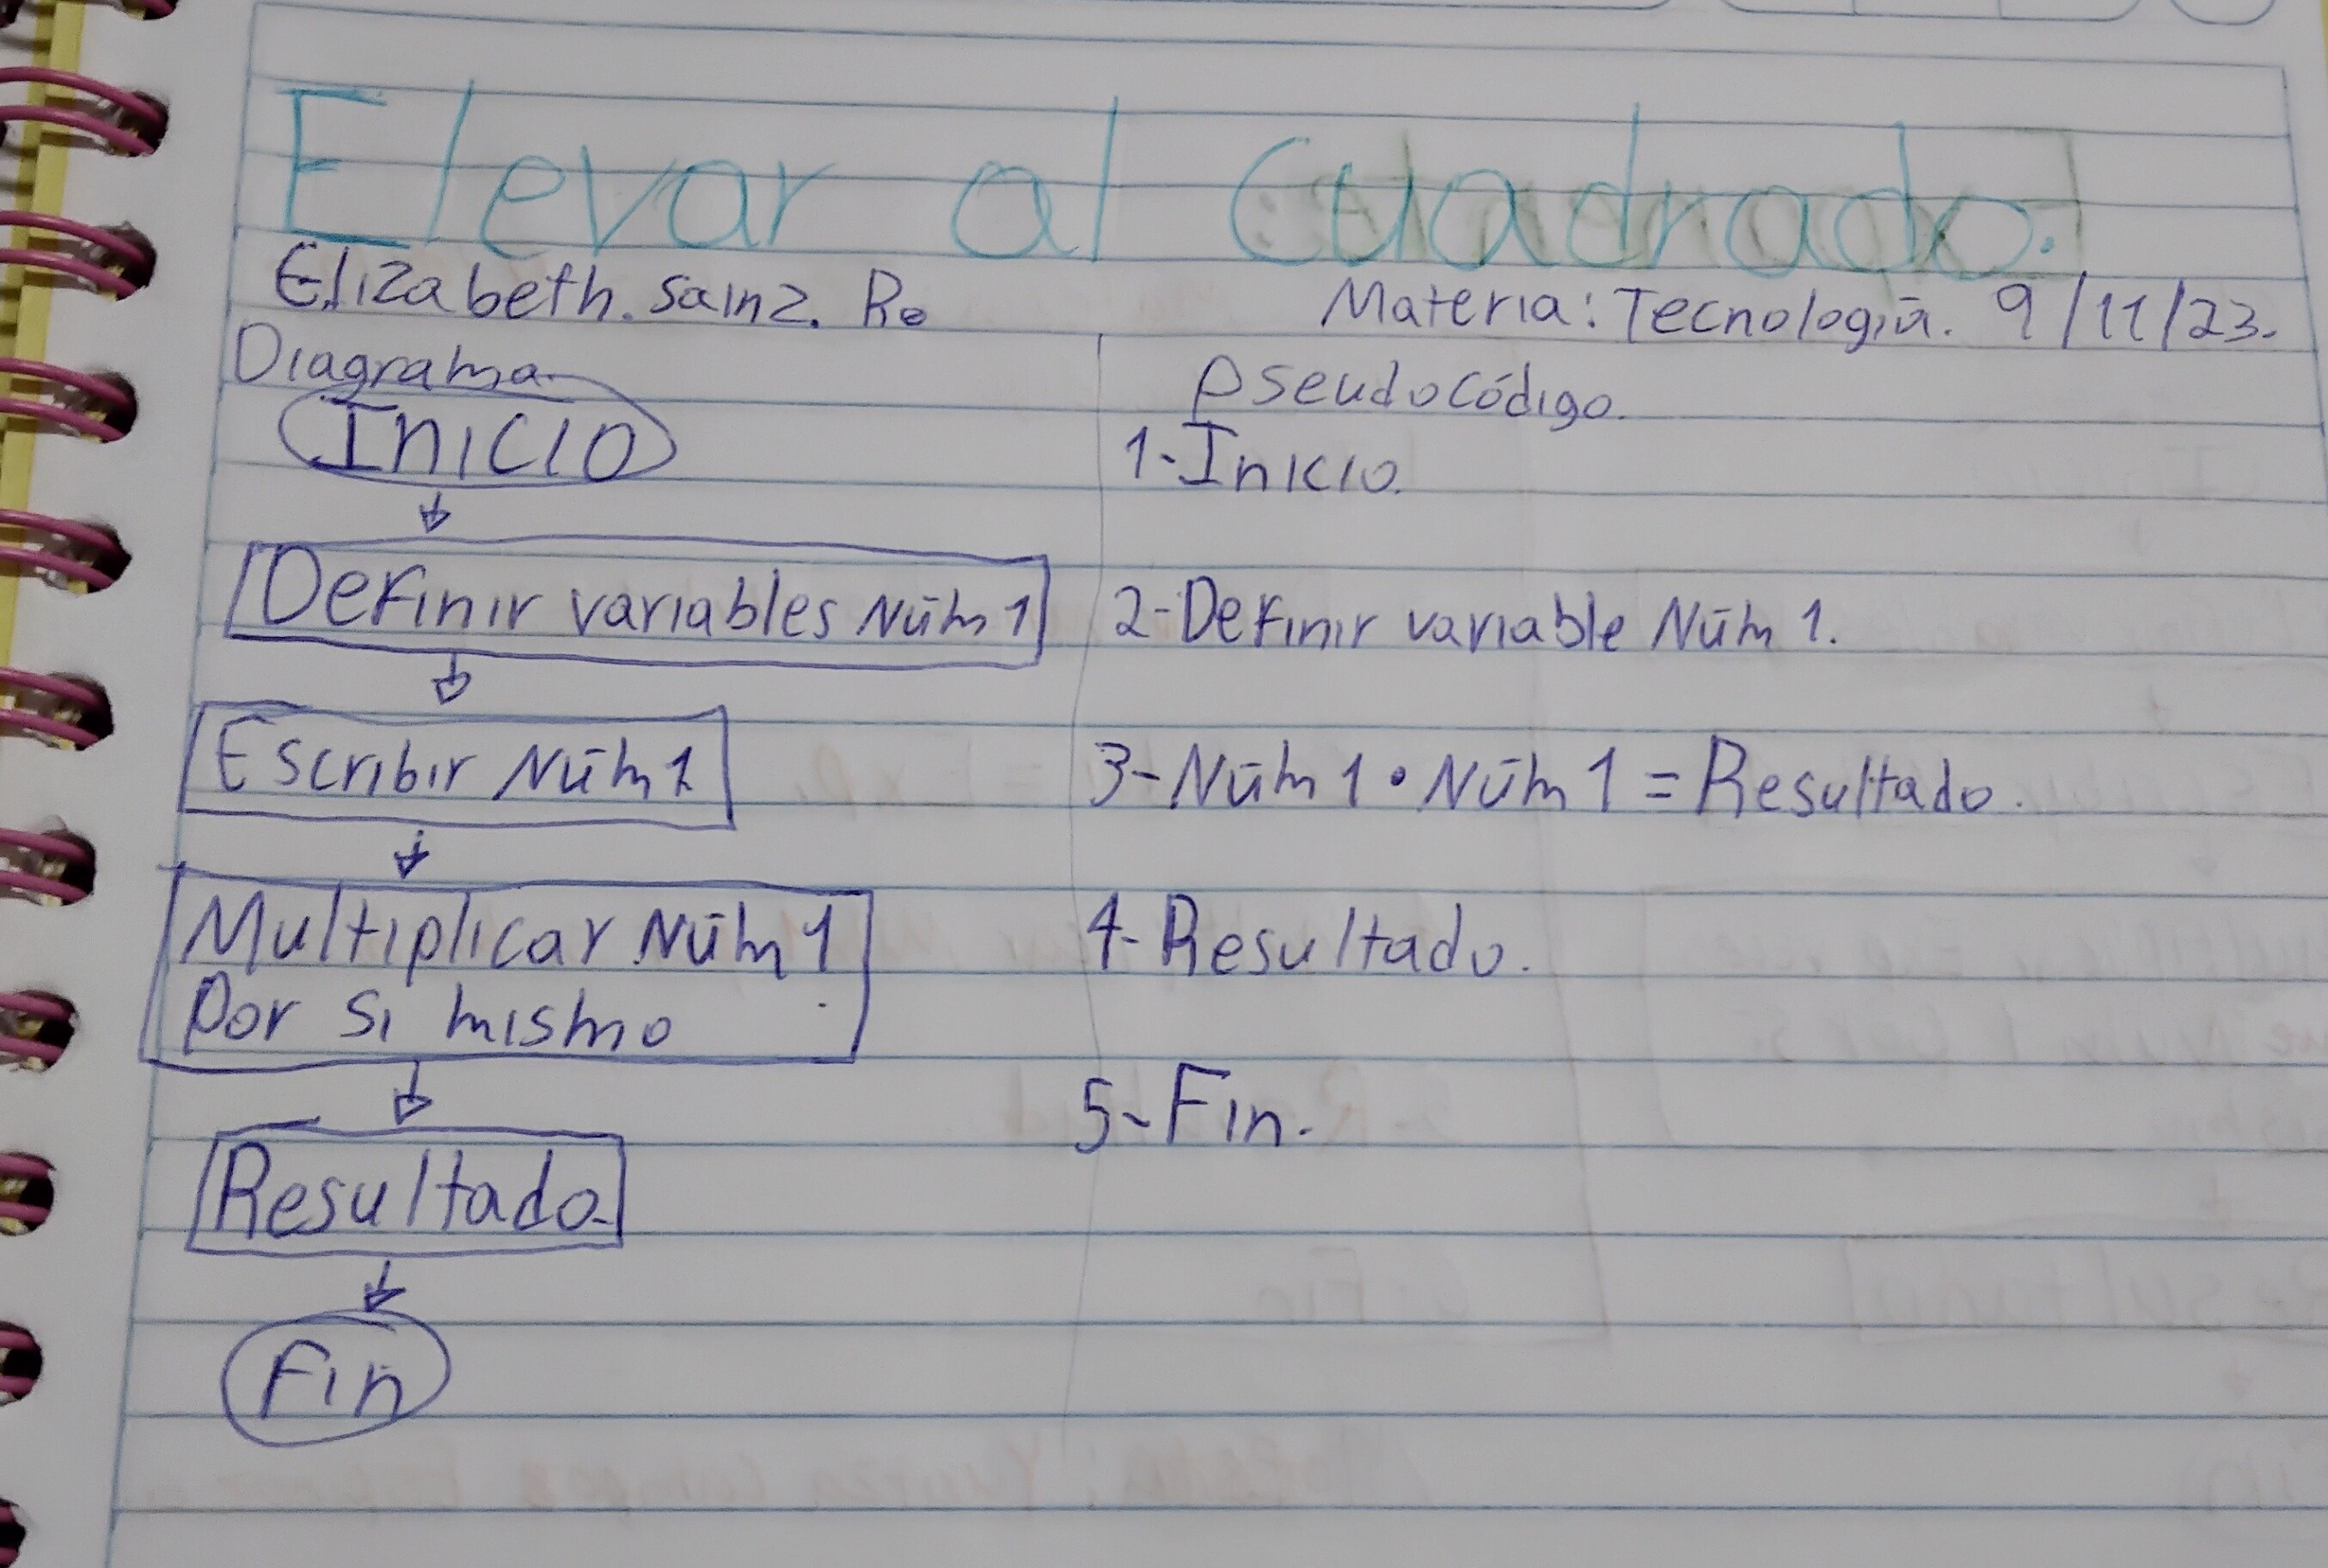 Elevar al Cuadrado.
Elizabeth. Sainz. R.
Materia: Tecnología. 9/11/23.
Diagrama.
Inicio
Definir variables Núm 1
Escribir Núm 1
Multiplicar Núm 1
por si mismo
Resultado
Fin
Pseudocódigo.
1-Inicio.
2-Definir variable Núm 1.
3-Núm 1 • Núm 1 = Resultado.
4-Resultado.
5-Fin.